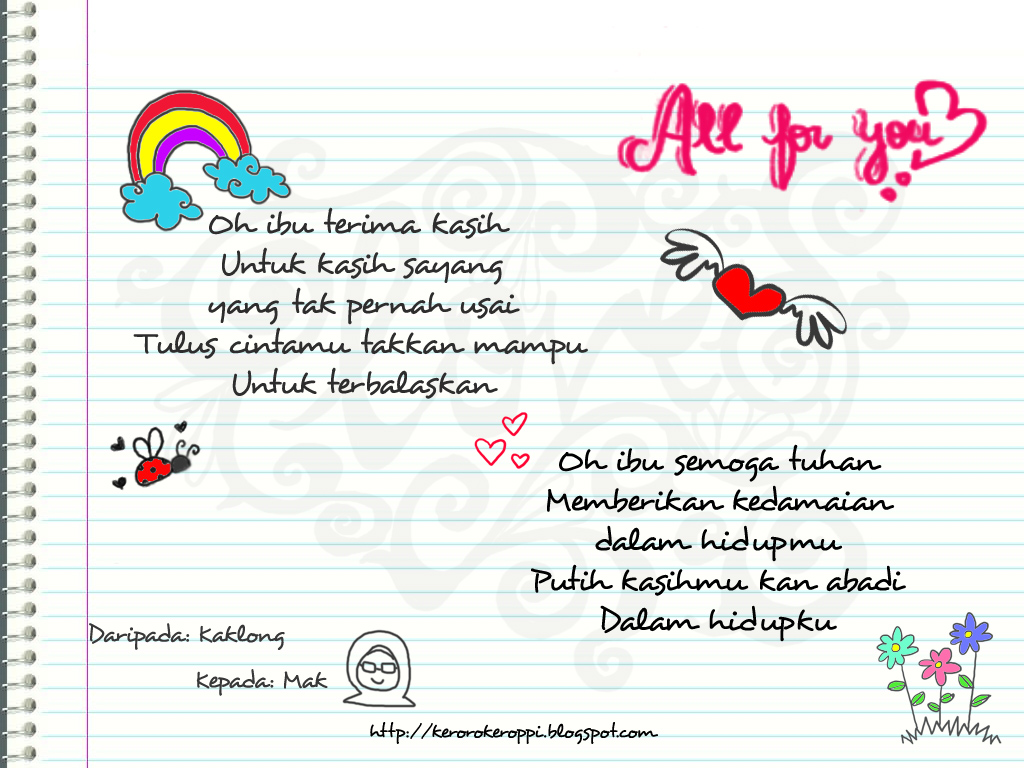 All for you
Oh ibu terima kasih
Untuk kasih sayang
yang tak pernah usai
Tulus cintamu takkan mampu
Untuk terbalaskan
Oh ibu semoga tuhan
Memberikan kedamaian
dalam hidupmu
Putih kasihmu kan abadi
Dalam hidupku
Daripada: Kaklong
Kepada: Mak
http://kerorokeroppi.blogspot.com